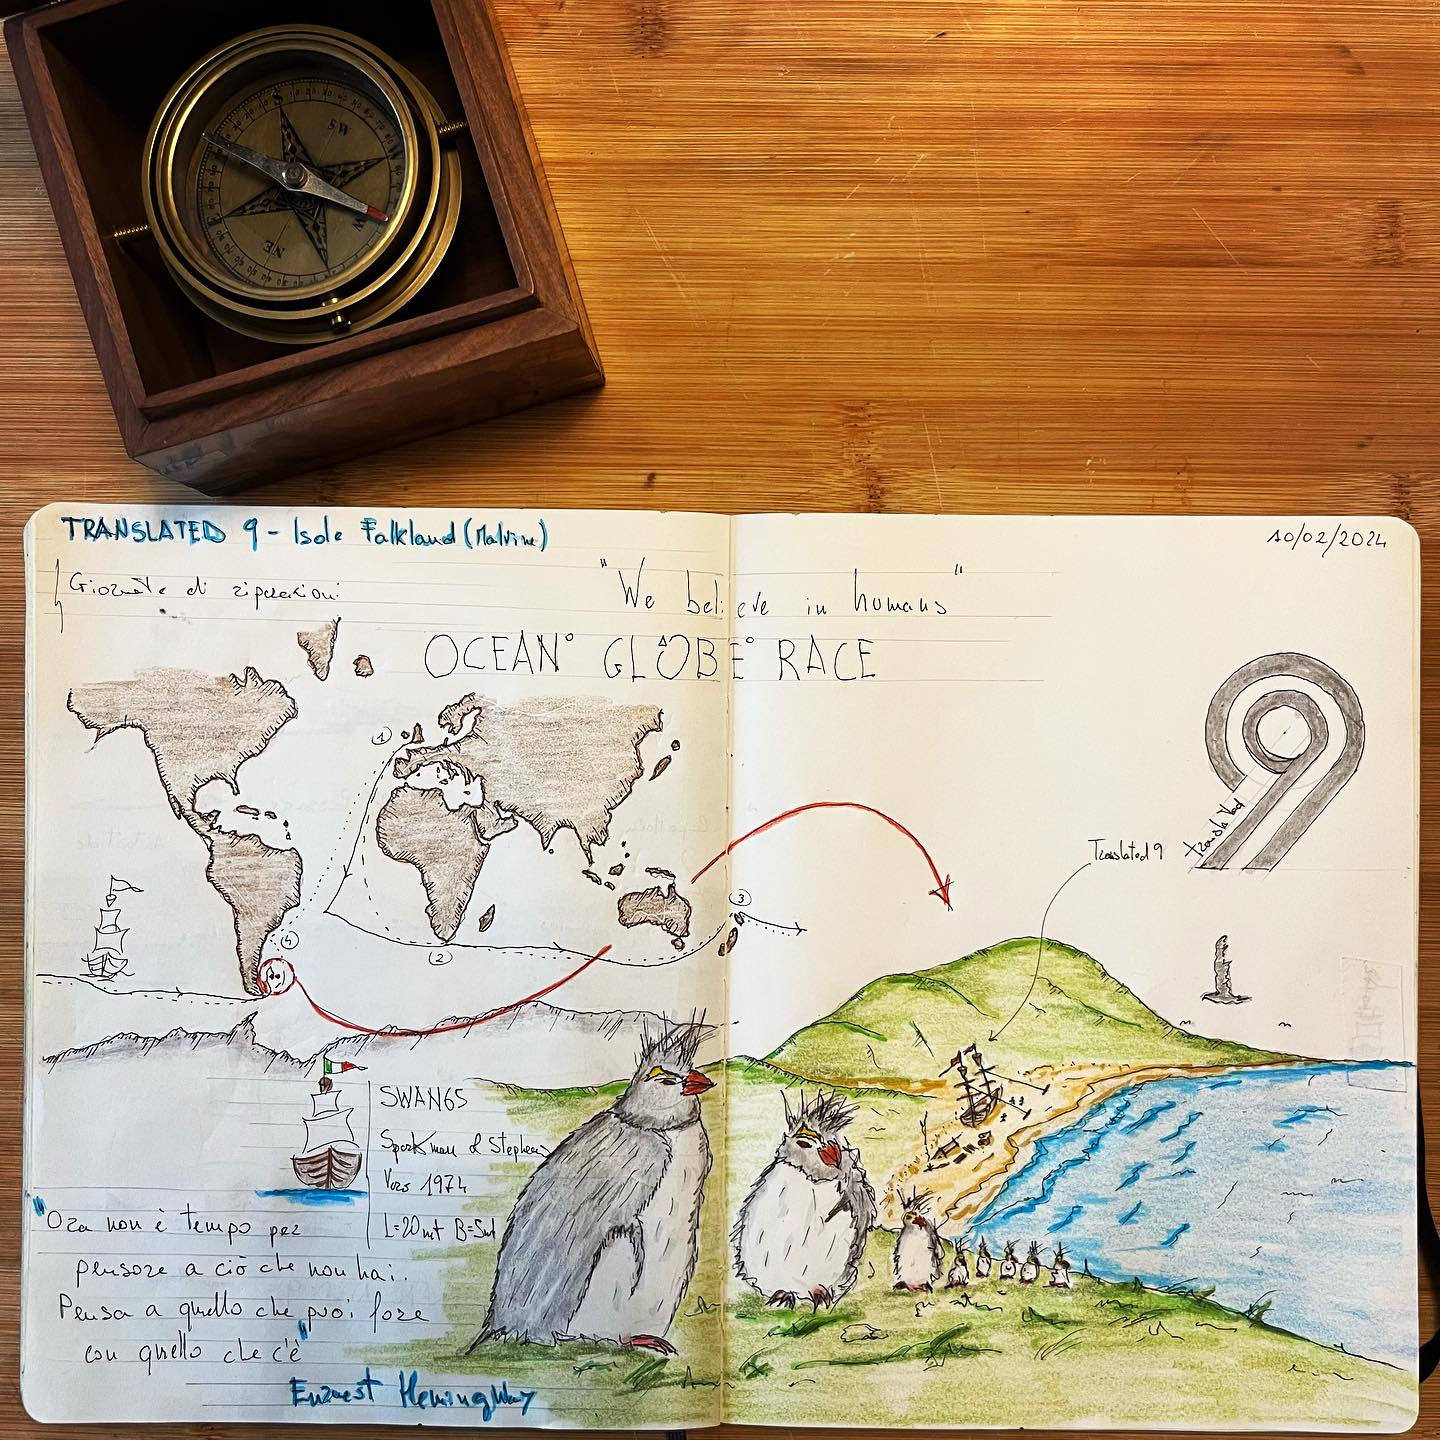 TRANSLATED 9 - Isole Falkland (Malvine)
10/02/2024
Giornate di riparazioni
"We believe in humans"
OCEAN GLOBE RACE
1
2
3
4
Translated
Translated 9
SWAN65
Sparkman & Stephens
Varo 1974
L=20mt B=5mt
"Ora non è tempo per
pensare a ciò che non hai.
Pensa a quello che puoi fare
con quello che c'è"
Ernest Hemingway
SW
NE